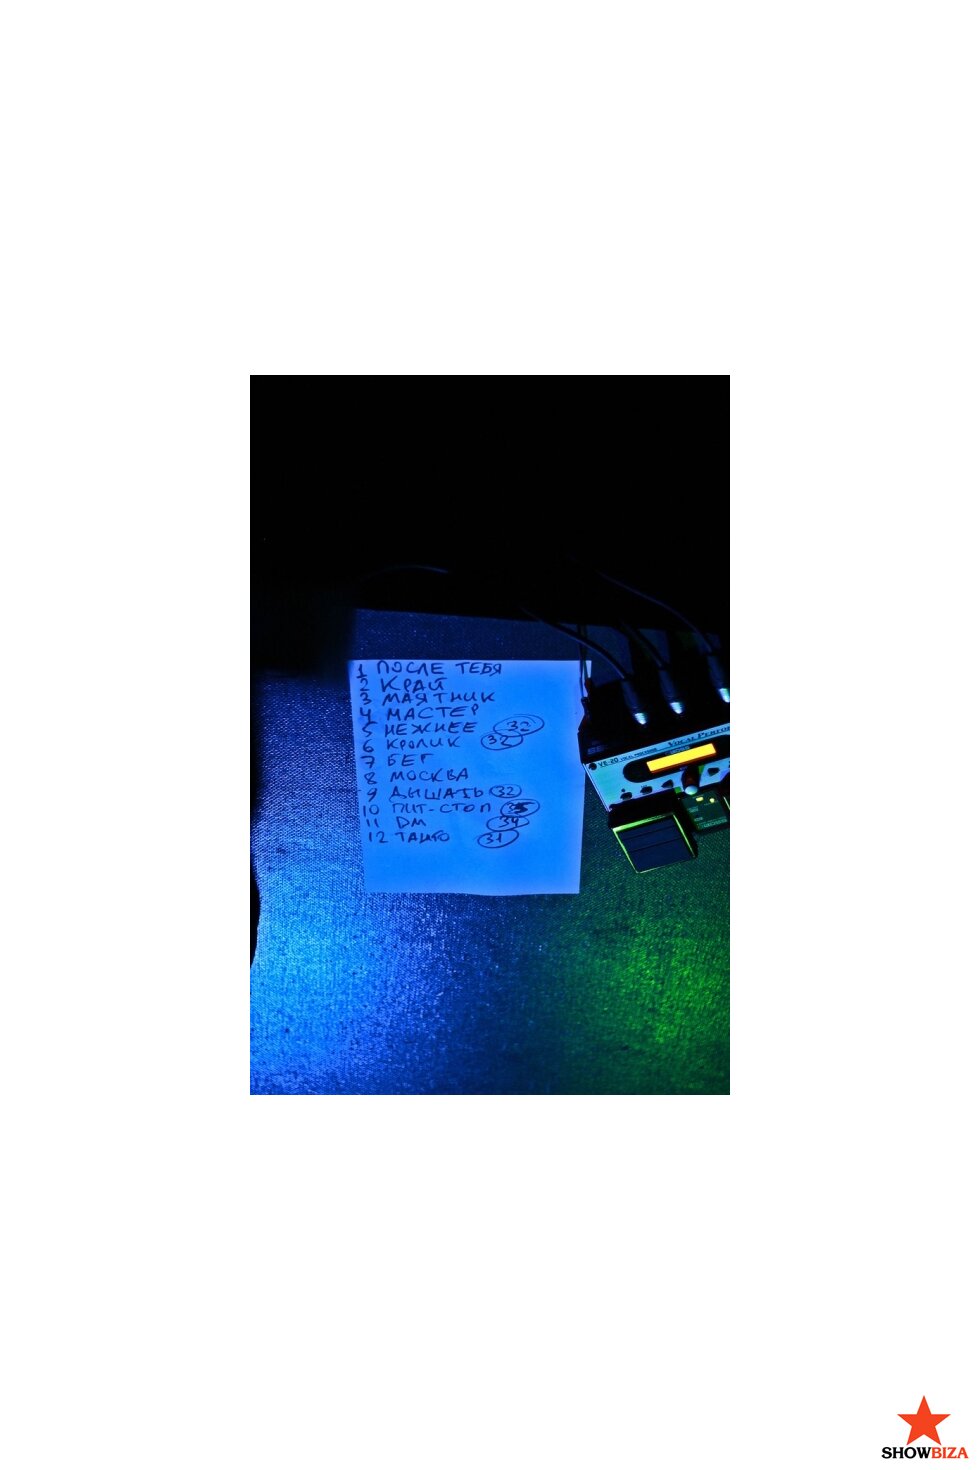 1 ПОСЛЕ ТЕБЯ
2 КРАЙ
3 МАЯТНИК
4 МАСТЕР
5 НЕЖНЕЕ 32
6 КРОЛИК 32
7 БЕГ
8 МОСКВА
9 ДЫШАТЬ 32
10 ПИТ-СТОП 35
11 DM 34
12 ТАНГО 31
VE-20 VOCAL PROCESSOR
VOCAL
SHOWBIZA